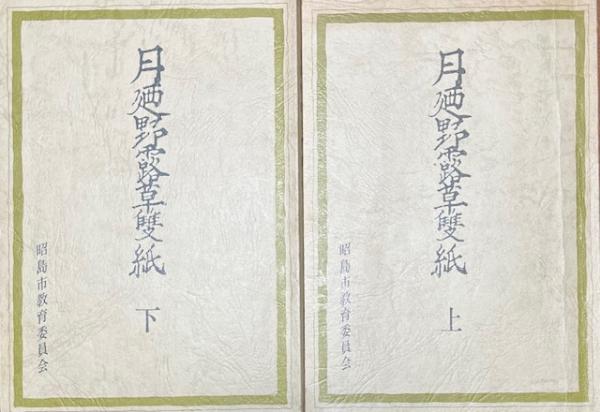 月廼野露草雙紙
上
昭島市教育委員会
月廼野露草雙紙
下
昭島市教育委員会